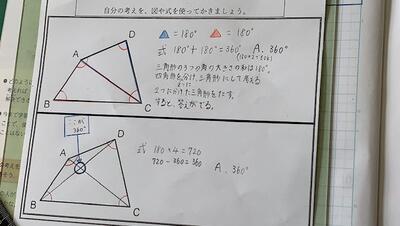 自分の考えを、図や式を使ってかきましょう。
D
A
B
C
=180° =180°
式 180°+180°=360° A. 360°
(180×2でもOK)
三角形の3つの角の大きさの和は180°。
四角形を分け、三角形にして考える
2つに分けた三角形をたす。
すると、答えがでる。
ここが
360°
A
D
B
C
式 180×4=720
720-360=360
A. 360°